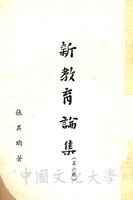 新教育論集
(第六冊)
張其昀著
中國文化大學